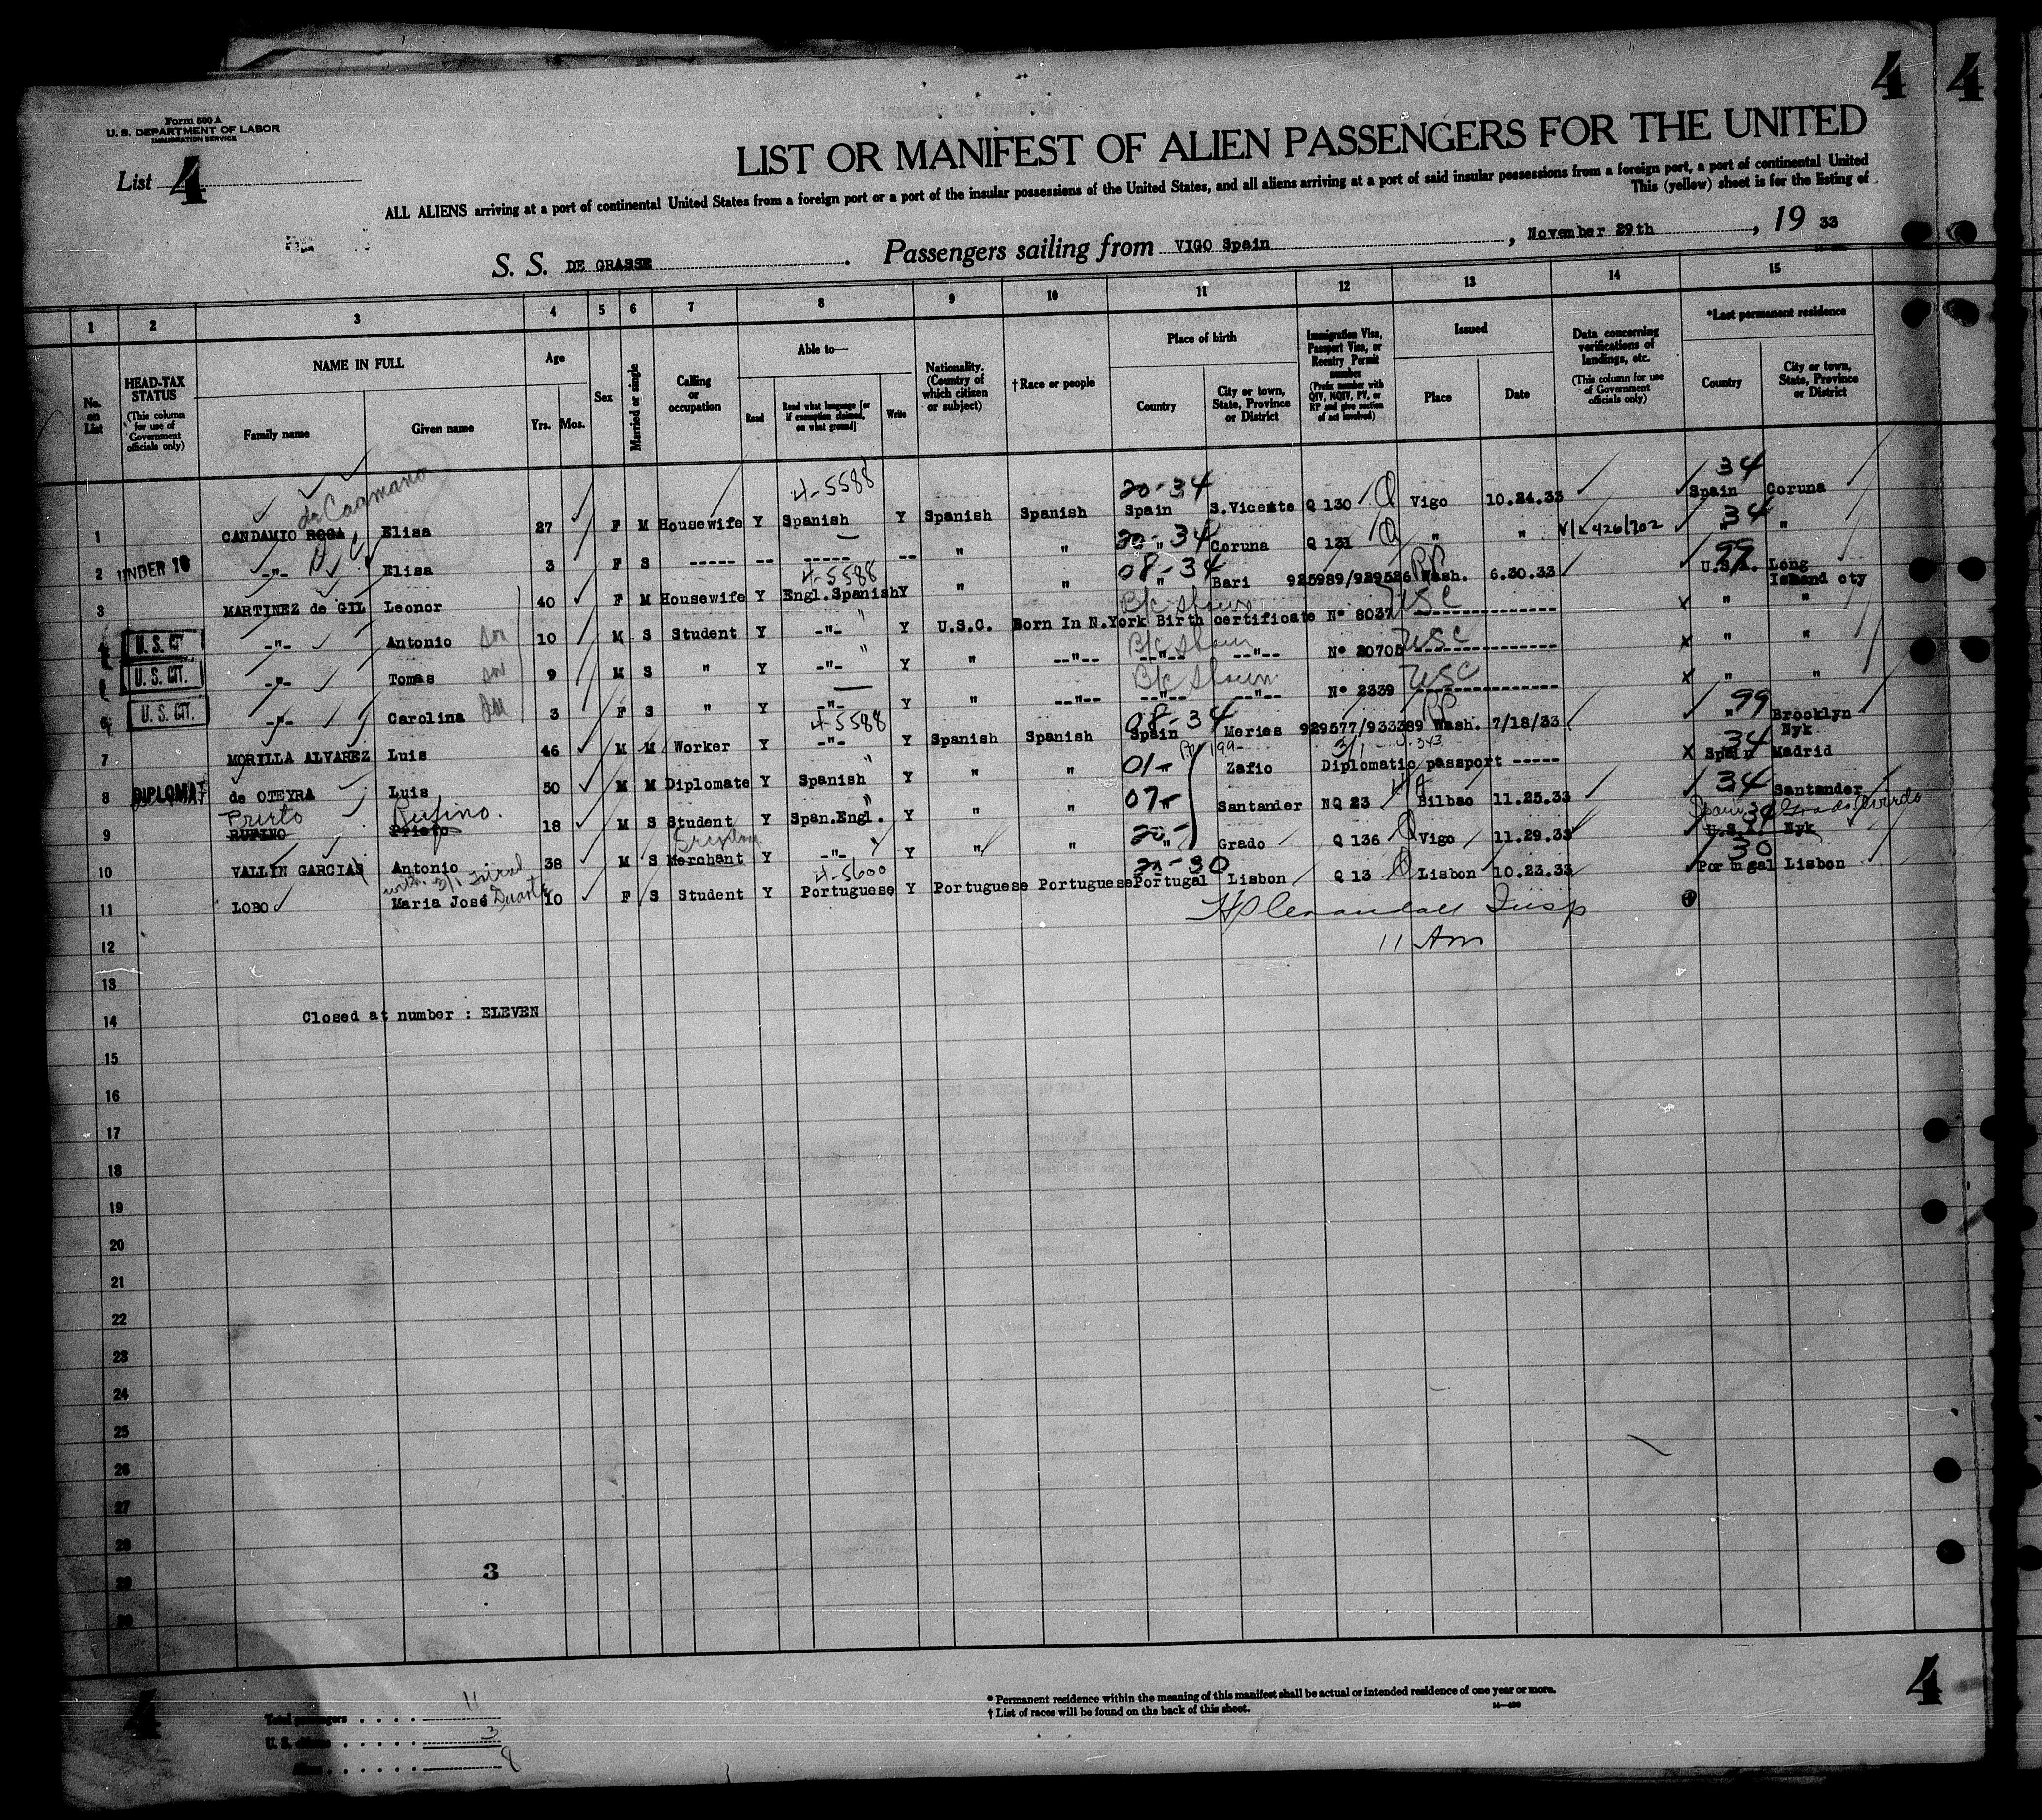 4 4
Form 500 A
U. S. DEPARTMENT OF LABOR
IMMIGRATION SERVICE
List 4
LIST OR MANIFEST OF ALIEN PASSENGERS FOR THE UNITED
ALL ALIENS arriving at a port of continental United States from a foreign port or a port of the insular possessions of the United States, and all aliens arriving at a port of said insular possessions from a foreign port, a port of continental United
This (yellow) sheet is for the listing of
S. S. DE GRASSE. Passengers sailing from VIGO Spain, November 29th, 19 33
1 2 3 4 5 6 7 8 9 10 11 12 13 14 15
No. on List
HEAD-TAX STATUS (This column for use of Government officials only)
NAME IN FULL Family name Given name
Age Yrs. Mos.
Sex
Married or single
Calling or occupation
Able to— Read Read what language [or if exemption claimed, on what ground] Write
Nationality. (Country of which citizen or subject)
† Race or people
Place of birth Country City or town, State, Province or District
Immigration Visa, Passport Visa, or Reentry Permit number (Prefix number with QIV, NQIV, PV, or RP and give section of act involved)
Issued Place Date
Data concerning verifications of landings, etc. (This column for use of Government officials only)
*Last permanent residence Country City or town, State, Province or District
de Caamano 4-5588 20-34 34
1 CANDAMIO ROGA Elisa 27 F M Housewife Y Spanish Y Spanish Spanish Spain S.Vicente Q 130 Vigo 10.24.33 Spain Coruna
20-34 34
2 UNDER 16 -"- Elisa 3 F S ----- -- ----- -- " " " Coruna Q 131 " " V/L 426/702 " "
4-5588 08-34 RP 99
3 MARTINEZ de GIL Leonor 40 F M Housewife Y Engl.Spanish Y " " " Bari 925989/929526 Wash. 6.30.33 U.S.A. Long Island cty
B/c Shown USC
4 U. S. CIT. -"- Antonio son 10 M S Student Y -"- Y U.S.C. Born In N.York Birth certificate N° 8037 -------------- x " "
B/c Shown USC
5 U. S. CIT. -"- Tomas son 9 M S " Y -"- Y " --"-- --"-- --"-- N° 20705 -------------- x " "
B/c Shown USC
6 U. S. CIT. -"- Carolina 3 F S " Y -"- Y " --"-- --"-- --"-- N° 2339 -------------- x " "
4-5588 08-34 RP 99
7 MORILLA ALVAREZ Luis 46 M M Worker Y -"- Y Spanish Spanish Spain Meries 929577/933389 Wash. 7/18/33 " Brooklyn Nyk.
01- 3/1 34
8 DIPLOMAT de OTEYRA Luis 50 M M Diplomate Y Spanish Y " " Zafio Diplomatic passport ----- x Spain Madrid
Prieto Rufino. 07- 34
9 RUFINO Prieto 18 M S Student Y Span.Engl. Y " " " Santander NQ 23 Bilbao 11.25.33 Santander
20- Spain 34 Grado Oviedo
10 VALLIN GARCIAS Antonio 38 M S Merchant Y -"- Y " " " Grado Q 136 Vigo 11.29.33 U.S.A. Nyk
with 4-5600 20-30 30
11 LOBO Maria José Duarte 10 F S Student Y Portuguese Y Portuguese Portuguese Portugal Lisbon Q 13 Lisbon 10.23.33 Portugal Lisbon
Insp
12 11 Am
13
14 Closed at number : ELEVEN
15
16
17
18
19
20
21
22
23
24
25
26
27
28
29
30
3
4 4
Total passengers . . . . 11
U. S. citizens . . . . . 3
Aliens . . . . . . 8
* Permanent residence within the meaning of this manifest shall be actual or intended residence of one year or more.
† List of races will be found on the back of this sheet.